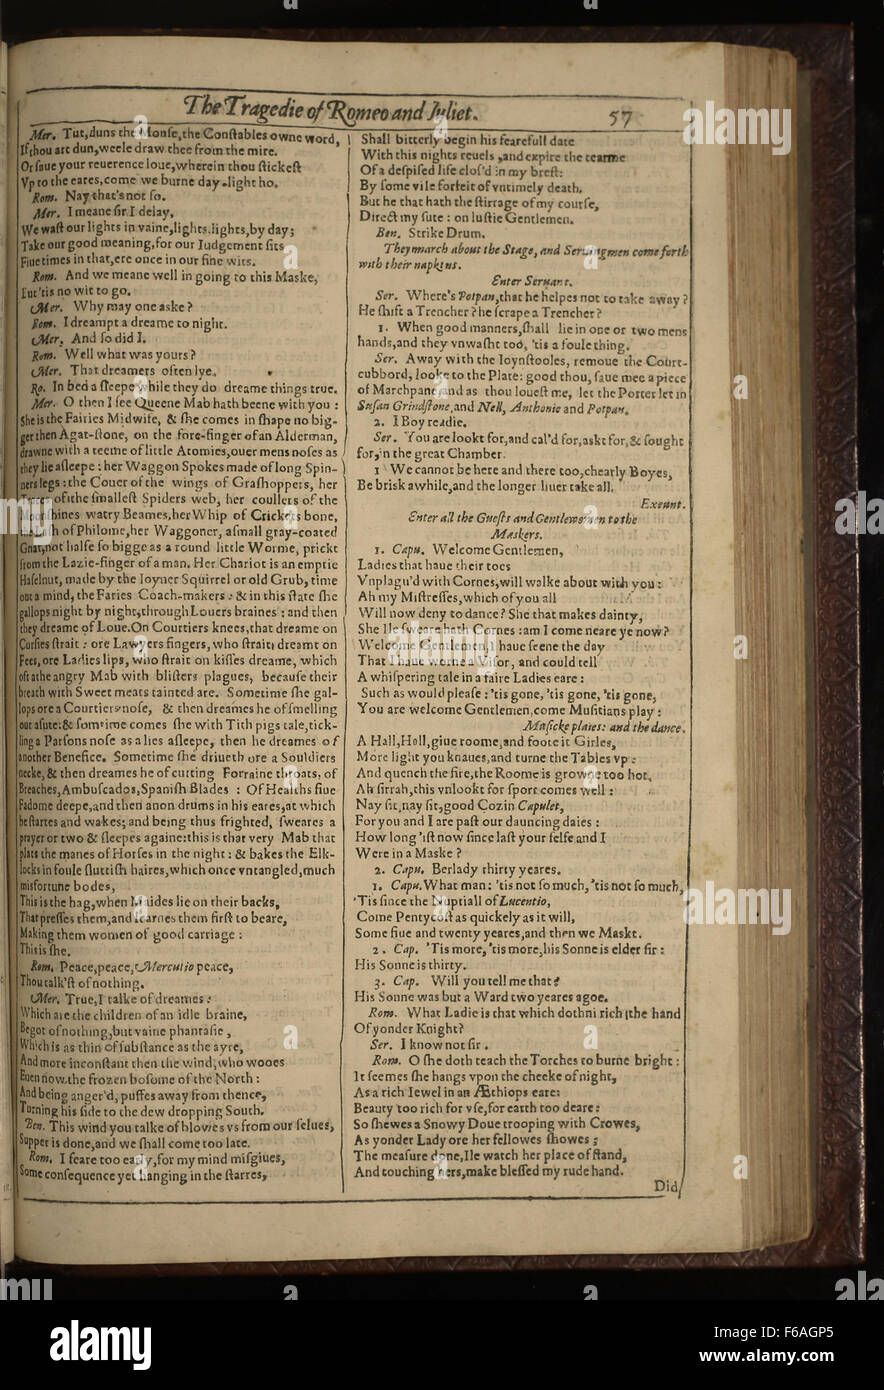 The Tragedie of Romeo and Juliet. 57
Mer. Tut, duns the Mouse, the Constables owne word,
If thou art dun, weele draw thee from the mire.
Or saue your reuerence loue, wherein thou stickest
Vp to the eares, come we burne day-light ho.
Rom. Nay that's not so.
Mer. I meane sir I delay,
We wast our lights in vaine, lights, lights, by day;
Take our good meaning, for our Iudgement sits
Fiue times in that, ere once in our fine wits.
Rom. And we meane well in going to this Maske,
But 'tis no wit to go.
Mer. Why may one aske?
Rom. I dreampt a dreame to night.
Mer. And so did I.
Rom. Well what was yours?
Mer. That dreamers often lye.
Ro. In bed a sleepe while they do dreame things true.
Mer. O then I see Queene Mab hath beene with you:
She is the Fairies Midwife, & she comes in shape no big-
ger then Agat-stone, on the fore-finger of an Alderman,
drawne with a teeme of little Atomies, ouer mens noses as
they lie asleepe: her Waggon Spokes made of long Spin-
ners legs: the Couer of the wings of Grashoppers, her
Traces of the smallest Spiders web, her coullers of the
Moonshines watry Beames, her Whip of Crickets bone,
the Lash of Philome, her Waggoner, a small gray-coated
Gnat, not halfe so bigge as a round little Worme, prickt
from the Lazie-finger of a man. Her Chariot is an emptie
Haselnut, made by the Ioyner Squirrel or old Grub, time
out a mind, the Faries Coach-makers: & in this state she
gallops night by night, through Louers braines: and then
they dreame of Loue. On Courtiers knees, that dreame on
Cursies strait: ore Lawyers fingers, who strait dreamt on
Fees, ore Ladies lips, who strait on kisses dreame, which
oft the angry Mab with blisters plagues, because their
breath with Sweet meats tainted are. Sometime she gal-
lops ore a Courtiers nose, & then dreames he of smelling
out a sute: & somtime comes she with Tith pigs tale, tick-
ling a Parsons nose as a lies asleepe, then he dreames of
another Benefice. Sometime she driueth ore a Souldiers
necke, & then dreames he of cutting Forraine throats, of
Breaches, Ambuscados, Spanish Blades: Of Healths fiue
Fadome deepe, and then anon drums in his eares, at which
he startes and wakes; and being thus frighted, sweares a
prayer or two & sleepes againe: this is that very Mab that
plats the manes of Horses in the night: & bakes the Elk-
locks in foule sluttish haires, which once vntangled, much
misfortune bodes,
This is the hag, when Maides lie on their backs,
That presses them, and learnes them first to beare,
Making them women of good carriage:
This is she.
Rom. Peace, peace, Mercutio peace,
Thou talk'st of nothing.
Mer. True, I talke of dreames:
Which are the children of an idle braine,
Begot of nothing, but vaine phantasie,
Which is as thin of substance as the ayre,
And more inconstant then the wind, who wooes
Euen now the frozen bosome of the North:
And being anger'd, puffes away from thence,
Turning his side to the dew dropping South.
Ben. This wind you talke of blowes vs from our selues,
Supper is done, and we shall come too late.
Rom. I feare too early, for my mind misgiues,
Some consequence yet hanging in the starres,
Shall bitterly begin his fearefull date
With this nights reuels, and expire the tearme
Of a despised life clos'd in my brest:
By some vile forfeit of vntimely death.
But he that hath the stirrage of my course,
Direct my sute: on lustie Gentlemen.
Ben. Strike Drum.
They march about the Stage, and Seruingmen come forth
with their napkins.
Enter Seruant.
Ser. Where's Potpan, that he helpes not to take away?
He shift a Trencher? he scrape a Trencher?
1. When good manners, shall lie in one or two mens
hands, and they vnwasht too, 'tis a foule thing.
Ser. Away with the Ioynstooles, remoue the Court-
cubbord, looke to the Plate: good thou, saue mee a piece
of Marchpane, and as thou louest me, let the Porter let in
Susan Grindstone, and Nell, Anthonie and Potpan.
2. I Boy readie.
Ser. You are lookt for, and cal'd for, askt for, & sought
for, in the great Chamber.
1 We cannot be here and there too, chearly Boyes,
Be brisk awhile, and the longer liuer take all.
Exeunt.
Enter all the Guests and Gentlewomen to the
Maskers.
1. Capu. Welcome Gentlemen,
Ladies that haue their toes
Vnplagu'd with Cornes, will walke about with you:
Ah my Mistresses, which of you all
Will now deny to dance? She that makes dainty,
She Ile sweare hath Cornes: am I come neare ye now?
Welcome Gentlemen, I haue seene the day
That I haue worne a Visor, and could tell
A whispering tale in a faire Ladies eare:
Such as would please: 'tis gone, 'tis gone, 'tis gone,
You are welcome Gentlemen, come Musitians play:
Musicke plaies: and the dance.
A Hall, Hall, giue roome, and foote it Girles,
More light you knaues, and turne the Tables vp:
And quench the fire, the Roome is growne too hot,
Ah sirrah, this vnlookt for sport comes well:
Nay sit, nay sit, good Cozin Capulet,
For you and I are past our dauncing daies:
How long 'ist now since last your selfe and I
Were in a Maske?
2. Capu. Berlady thirty yeares.
1. Capu. What man: 'tis not so much, 'tis not so much,
'Tis since the Nuptiall of Lucentio,
Come Pentycost as quickely as it will,
Some fiue and twenty yeares, and then we Maskt.
2. Cap. 'Tis more, 'tis more, his Sonne is elder sir:
His Sonne is thirty.
3. Cap. Will you tell me that?
His Sonne was but a Ward two yeares agoe.
Rom. What Ladie is that which doth inrich the hand
Of yonder Knight?
Ser. I know not sir.
Rom. O she doth teach the Torches to burne bright:
It seemes she hangs vpon the cheeke of night,
As a rich Iewel in an Æthiops eare:
Beauty too rich for vse, for earth too deare:
So shewes a Snowy Doue trooping with Crowes,
As yonder Lady ore her fellowes showes;
The measure done, Ile watch her place of stand,
And touching hers, make blessed my rude hand.
Did
alamy
Image ID: F6AGP5
www.alamy.com